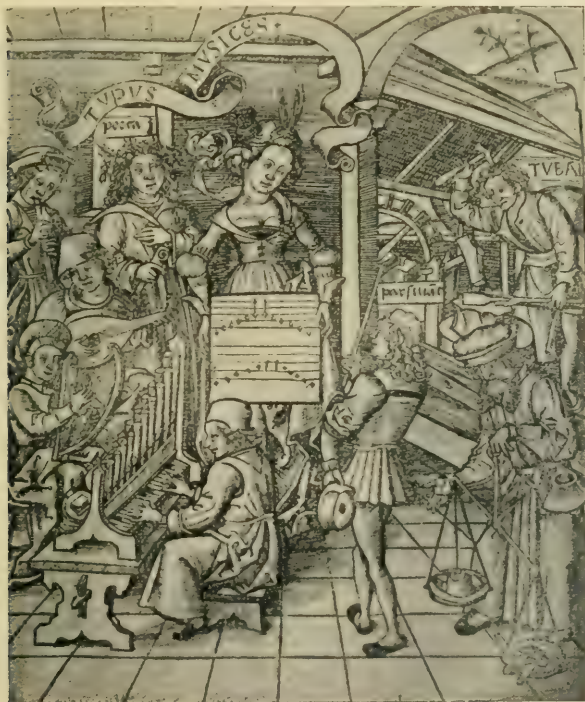 TVPVS MVSICES
poeta
TVBAL